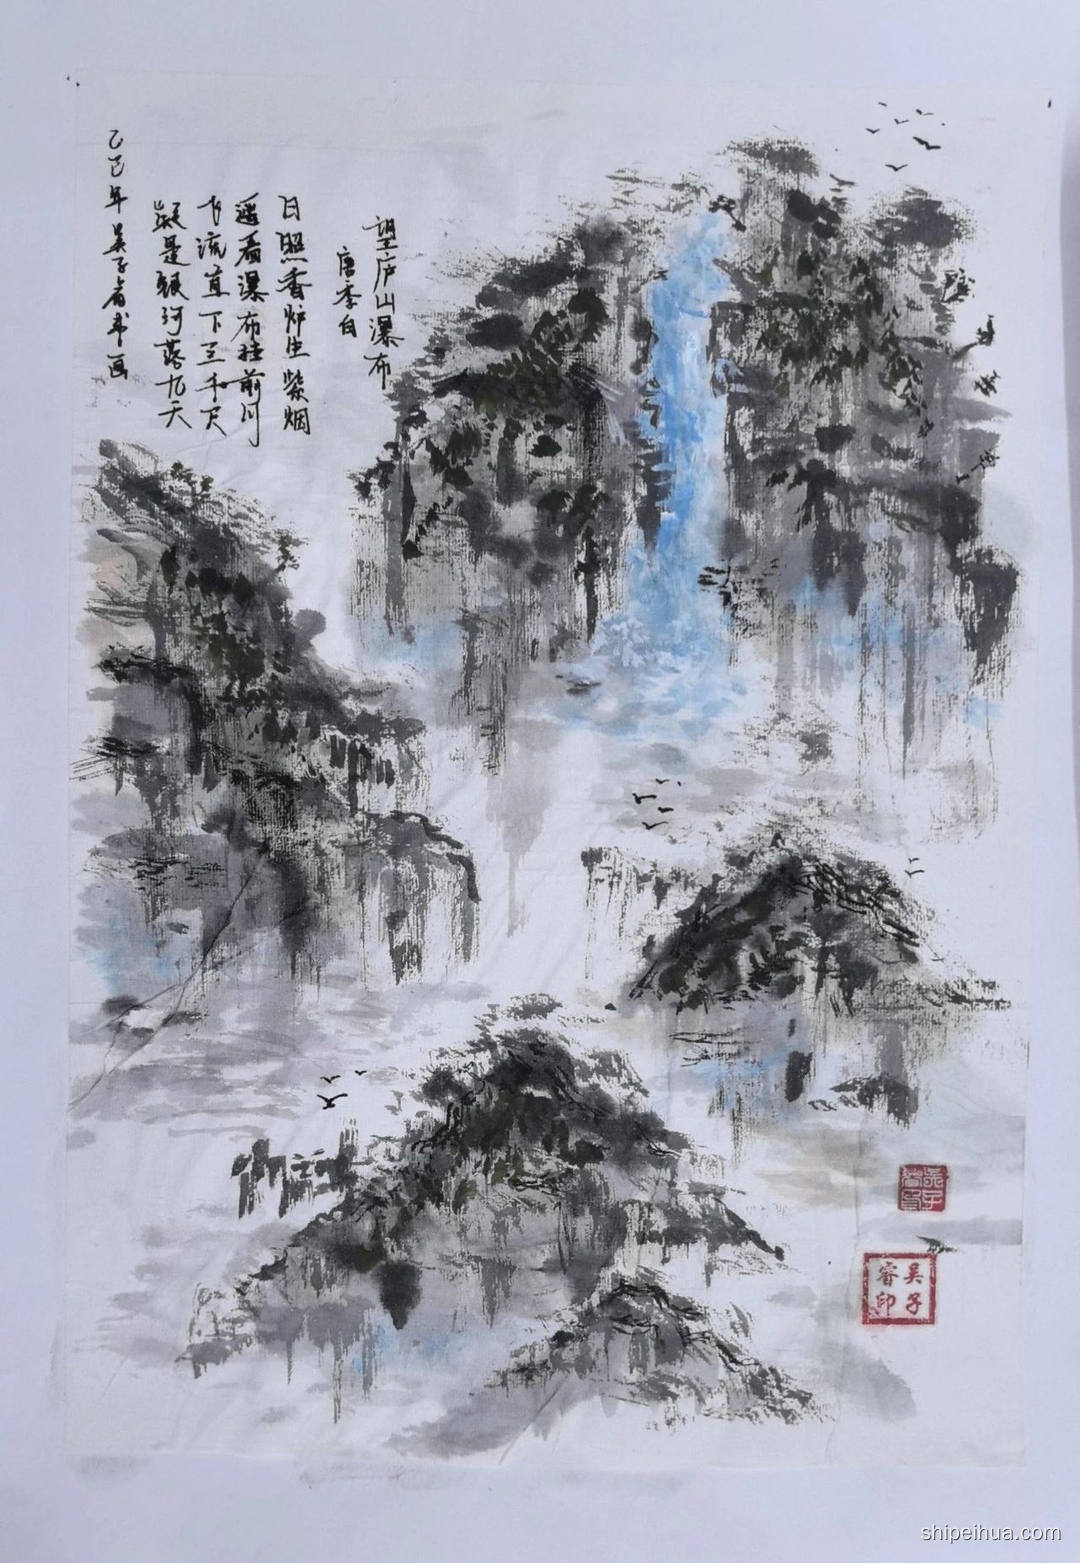 望庐山瀑布
唐李白
日照香炉生紫烟
遥看瀑布挂前川
飞流直下三千尺
疑是银河落九天
乙巳年吴子睿书画
吴子睿印
吴子睿印
shipeihua.com